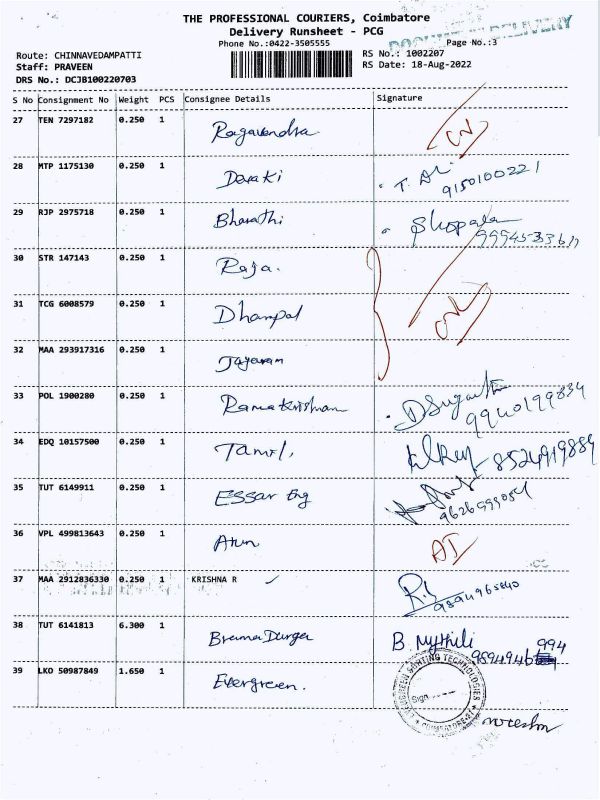 THE PROFESSIONAL COURIERS, Coimbatore
Delivery Runsheet - PCG
Phone No.:0422-3505555
Page No.:3
Route: CHINNAVEDAMPATTI
RS No.: 1002207
Staff: PRAVEEN
RS Date: 18-Aug-2022
DRS No.: DCJB100220703
S No Consignment No Weight PCS Consignee Details Signature
27 TEN 7297182 0.250 1 Ragavendra
28 MTP 1175130 0.250 1 Devaki 9150100221
29 RJP 2975718 0.250 1 Bharathi
30 STR 147143 0.250 1 Raja.
31 TCG 6008579 0.250 1 Dhanpal
32 MAA 293917316 0.250 1 Jayaram
33 POL 1900280 0.250 1 Ramakrishnan 9940199834
34 EDQ 10157500 0.250 1 Tamil, 8524919889
35 TUT 6149911 0.250 1 ESSAR Eng
36 VPL 499813643 0.250 1 Arun
37 MAA 2912836330 0.250 1 KRISHNA R
38 TUT 6141813 6.300 1 Brema Durga B. Mythili
39 LKO 50987849 1.650 1 Evergreen.
EVERGREEN SORTING TECHNOLOGIES
Sign
COIMBATORE